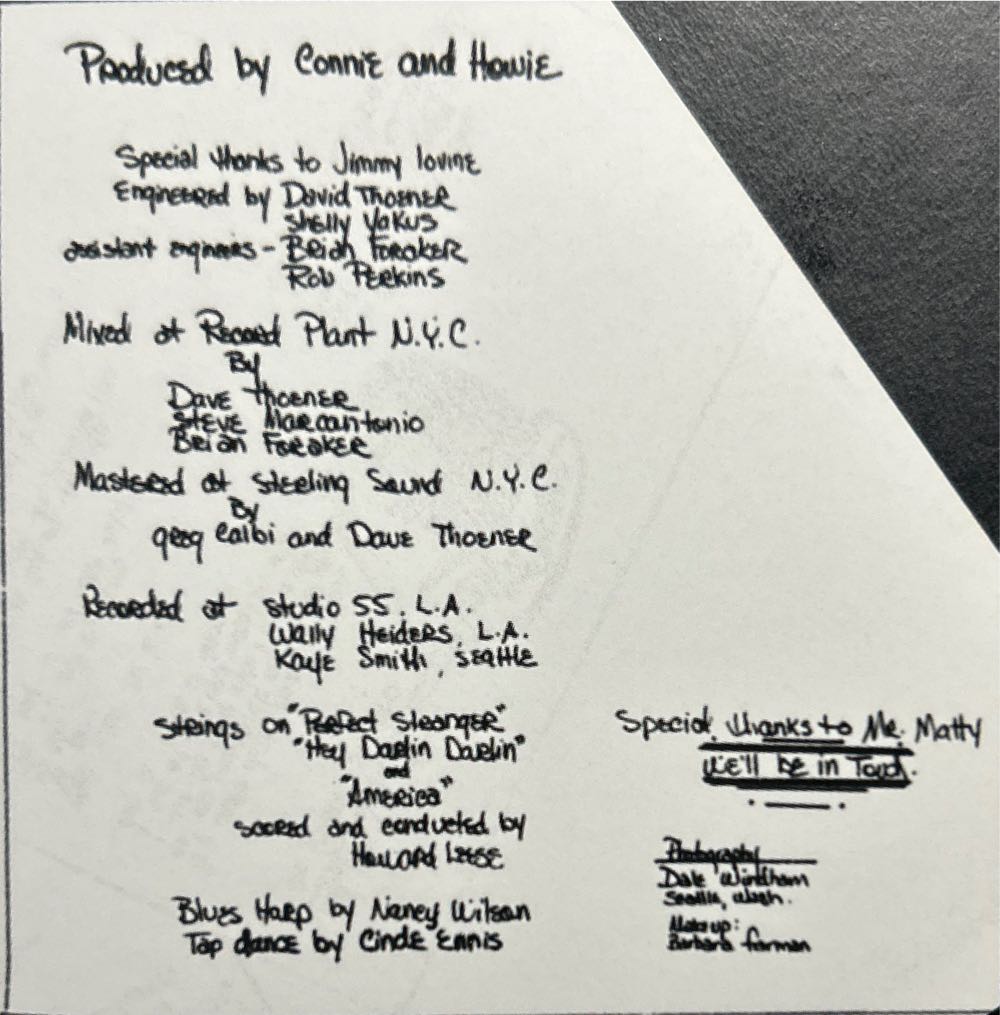 Produced by Connie and Howie
Special thanks to Jimmy Iovine
Engineered by David Thoener
Shelly Yakus
assistant engineers - Brian Foraker
Rob Perkins
Mixed at Record Plant N.Y.C.
By
Dave Thoener
Steve Marcantonio
Brian Foraker
Mastered at Sterling Sound N.Y.C.
By
Greg Calbi and Dave Thoener
Recorded at Studio 55, L.A.
Wally Heiders, L.A.
Kaye Smith, Seattle
Strings on "Perfect Stranger"
"Hey Darlin Darlin"
and
"America"
scored and conducted by
Howard Leese
Blues Harp by Nancy Wilson
Tap dance by Cinde Ennis
Special thanks to Mr. Matty
We'll be in Touch.
Photography
Dale Windham
Seattle, Wash.
Make up:
Barbara Farman